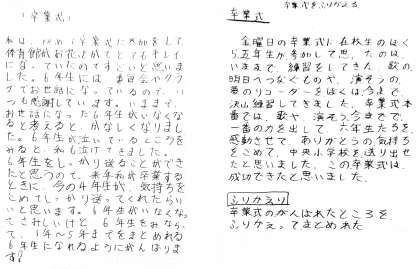 (卒業式)
私は、初めて卒業式に参加をして
体育館がお花とかでとてもキレイに
なっていたのですごいと思いま
した。6年生には、委員会やクラ
ブでお世話になっているので、い
つも感謝しています。いままで、
お世話になった6年生がいなくな
ると考えると、かなしくなりまし
た。6年生が泣いているところを
みると、私も泣けてきました。
6年生をしっかり送ることができ
たと思うので、来年私が卒業する
ときに、今の4年生が、気持ちを
こめてしっかり送ってくれたらい
いと思います。6年生がいなくなっ
てさみしいけど、6年生をみなら
って、1年～5年までをまとめれる
6年生になれるようにがんばりま
す!
卒業式をふりかえる
卒業式
金曜日の卒業式に在校生のぼく
ら五年生が参加して思ったのは、
いままで練習をしてきた、歌の
明日へつなぐものや、演そうの、
のリコーダーをぼくは今まで、
沢山練習してきました。卒業式本
番では、歌や、演そう、今までで、
一番の力を出して、六年生たちを、
感動させて、ありがとうの気持ち
をこめて、中央小学校を送り出せ
たと思いました。この卒業式は、
成功できたと思いました。
ふりかえり
卒業式のがんばれたところを
ふりかえってまとめれた